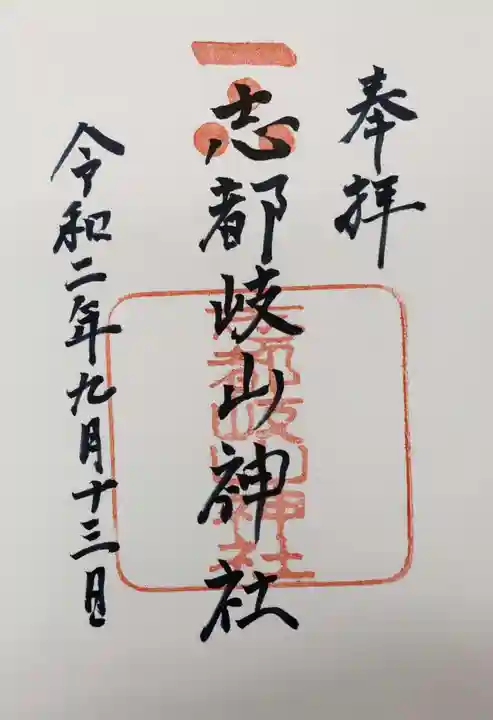 奉拝
志都岐山神社
志都岐山神社
令和二年九月十三日